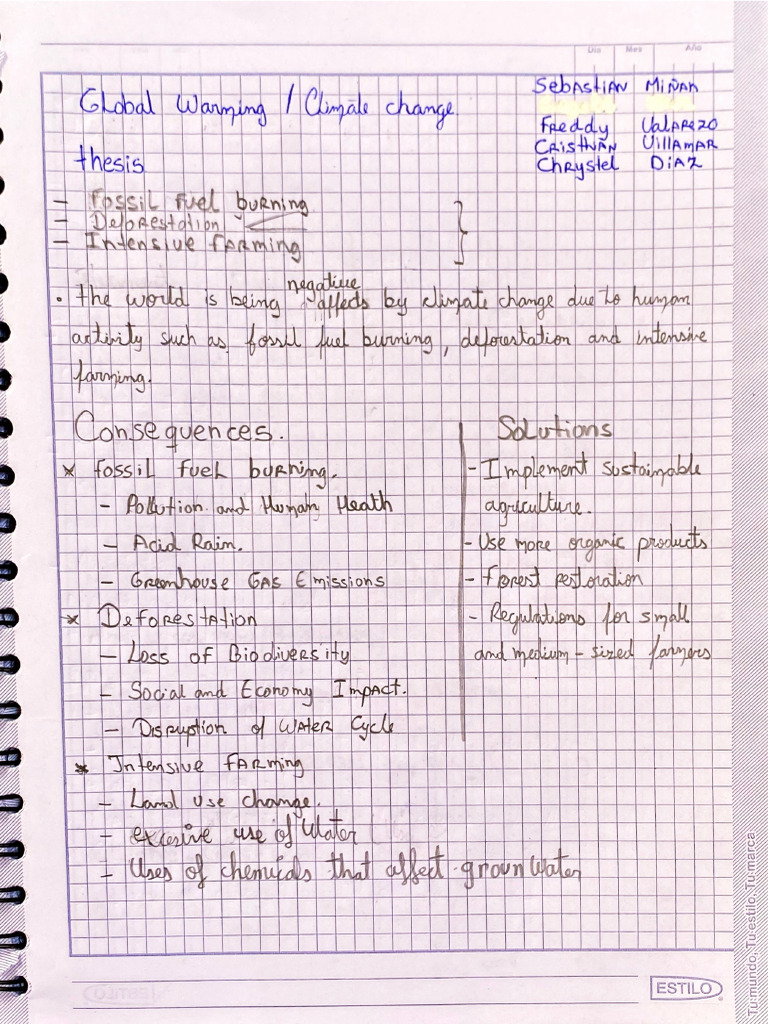 Dia Mes Año
Sebastian Miñan
Global Warming / Climate change
Freddy Valarezo
Cristhian Villamar
thesis
Chrystel Diaz
- Fossil fuel burning
- Deforestation
- Intensive farming
• the world is being negative affects by climate change due to human
activity such as fossil fuel burning, deforestation and intensive
farming.
Consequences.
Solutions
x fossil fuel burning.
- Pollution and Human Health
- Acid Rain.
- Greenhouse Gas Emissions
x Deforestation
- Loss of Biodiversity
- Social and Economy Impact.
- Disruption of Water Cycle
* Intensive farming
- Land use change.
- excesive use of Water
- Uses of chemicals that affect groun Water
- Implement Sustainable
agriculture.
- Use more organic products
- Forest restoration
- Regulations for small
and medium-sized farmers
ESTILO
Tu mundo, Tu estilo, Tu marca